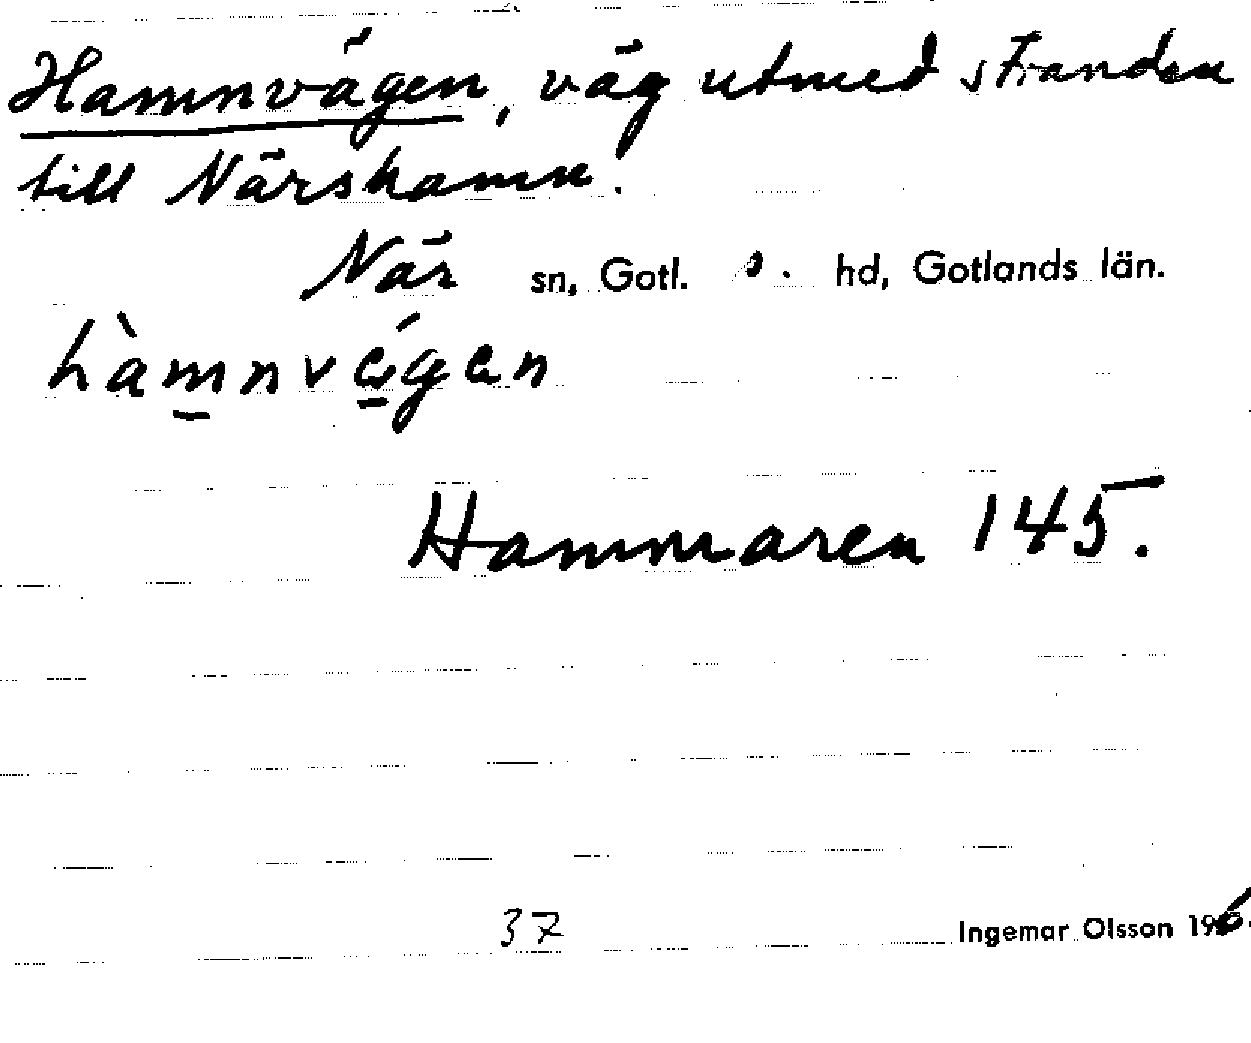 Hamnvägen, väg utmed stranden
till Närshamn.
När sn, Gotl. s. hd, Gotlands län.
hàmnvǽgen
Hammaren 145.
37
Ingemar Olsson 196